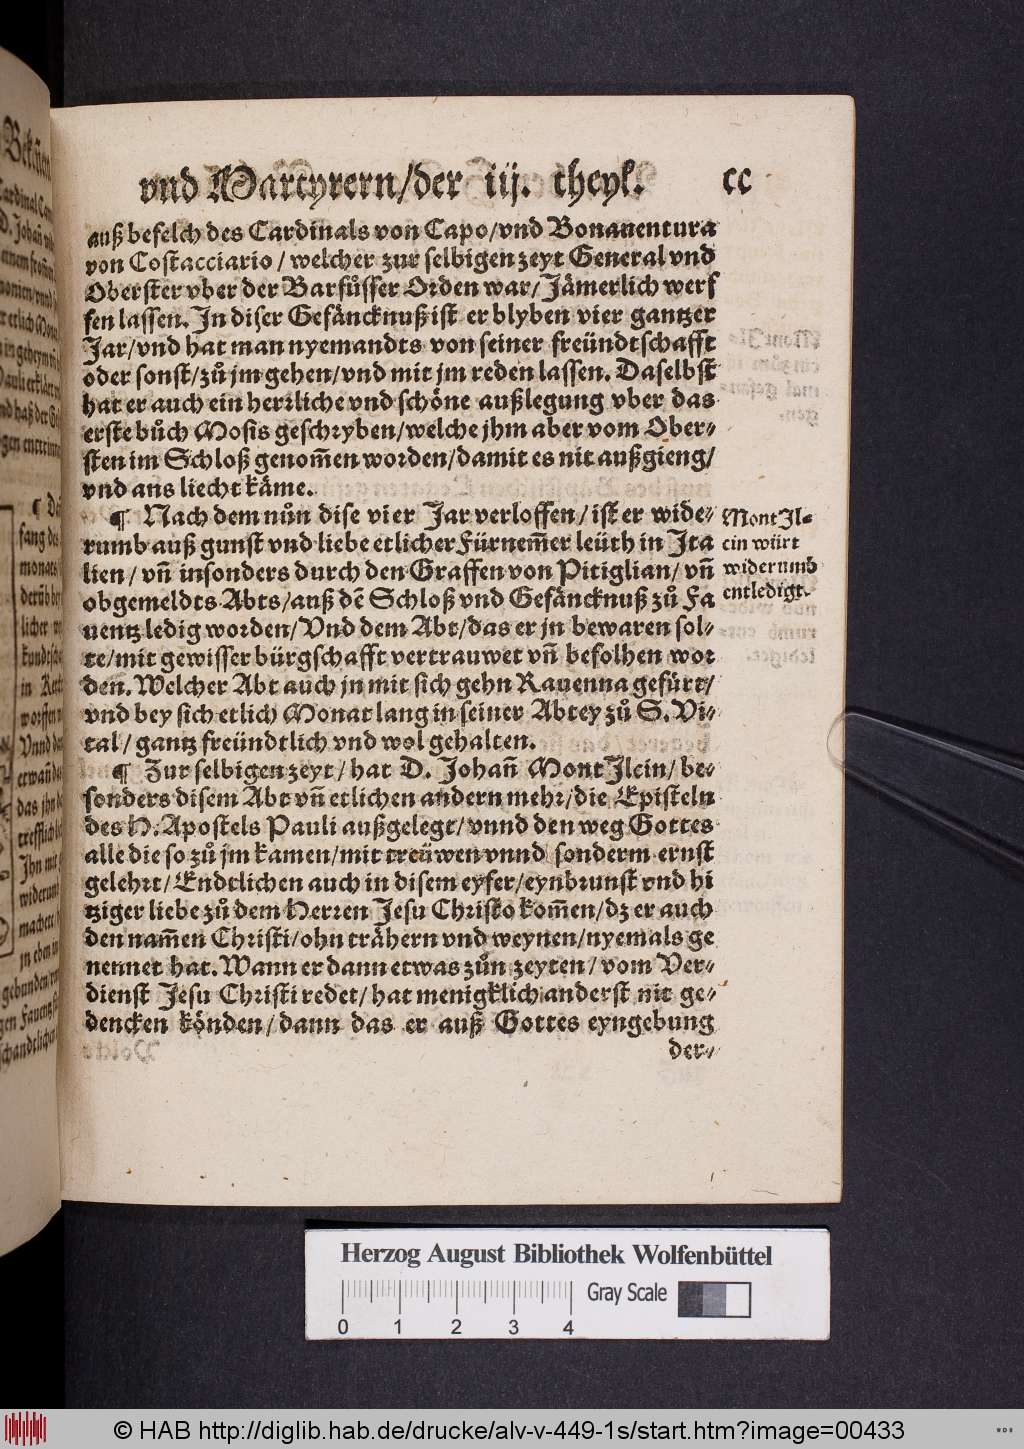 vnd Martyrern/der iij. theyl. cc
auß befelch des Cardinals von Capo/vnd Bonauentura
von Costacciario / welcher zur selbigen zeyt General vnd
Oberster vber der Barfůsser Orden war/ Jämerlich werf
fen lassen. In diser Gefäncknuß ist er blyben vier gantzer
Jar/vnd hat man nyemandts von seiner freündtschafft
oder sonst/zů jm gehen/vnd mit jm reden lassen. Daselbst
hat er auch ein herꝛliche vnd schöne außlegung vber das
erste bůch Mosis geschꝛyben/welche jhm aber vom Ober⸗
sten im Schloß genom̃en woꝛden/damit es nit außgieng/
vnd ans liecht käme.
¶ Nach dem nůn dise vier Jar verloffen/ ist er wide⸗
rumb auß gunst vnd liebe etlicher Fürnem̃er leüth in Ita
lien / vñ insonders durch den Graffen von Pitiglian/ vñ
obgemeldts Abts/auß dẽ Schloß vnd Gefäncknuß zů Fa
uentz ledig woꝛden/Vnd dem Abt/das er jn bewaren sol⸗
te/mit gewisser bürgschafft vertrauwet vñ befolhen woꝛ
den. Welcher Abt auch jn mit sich gehn Rauenna gefürt/
vnd bey sich etlich Monat lang in seiner Abtey zů S. Vi⸗
tal / gantz freündtlich vnd wol gehalten.
Mont Il⸗
cin würt
widerumb
entledigt.
¶ Zur selbigen zeyt / hat D. Johañ Mont Ilcin/ be⸗
sonders disem Abt vñ etlichen andern mehꝛ/die Episteln
des H. Apostels Pauli außgelegt/ vnnd den weg Gottes
alle die so zů jm kamen/mit treüwen vnnd sonderm ernst
gelehꝛt/ Endtlichen auch in disem eyfer/eynbꝛunst vnd hi
tziger liebe zů dem Herꝛen Jesu Chꝛisto kom̃en/dz er auch
den nam̃en Chꝛisti/ohn trähern vnd weynen/nyemals ge
nennet hat. Wann er dann etwas zůn zeyten/ vom Ver⸗
dienst Jesu Chꝛisti redet/ hat menigklich anderst nit ge⸗
dencken könden/ dann das er auß Gottes eyngebung
der⸗
Herzog August Bibliothek Wolfenbüttel
Gray Scale
0 1 2 3 4
© HAB http://diglib.hab.de/drucke/alv-v-449-1s/start.htm?image=00433